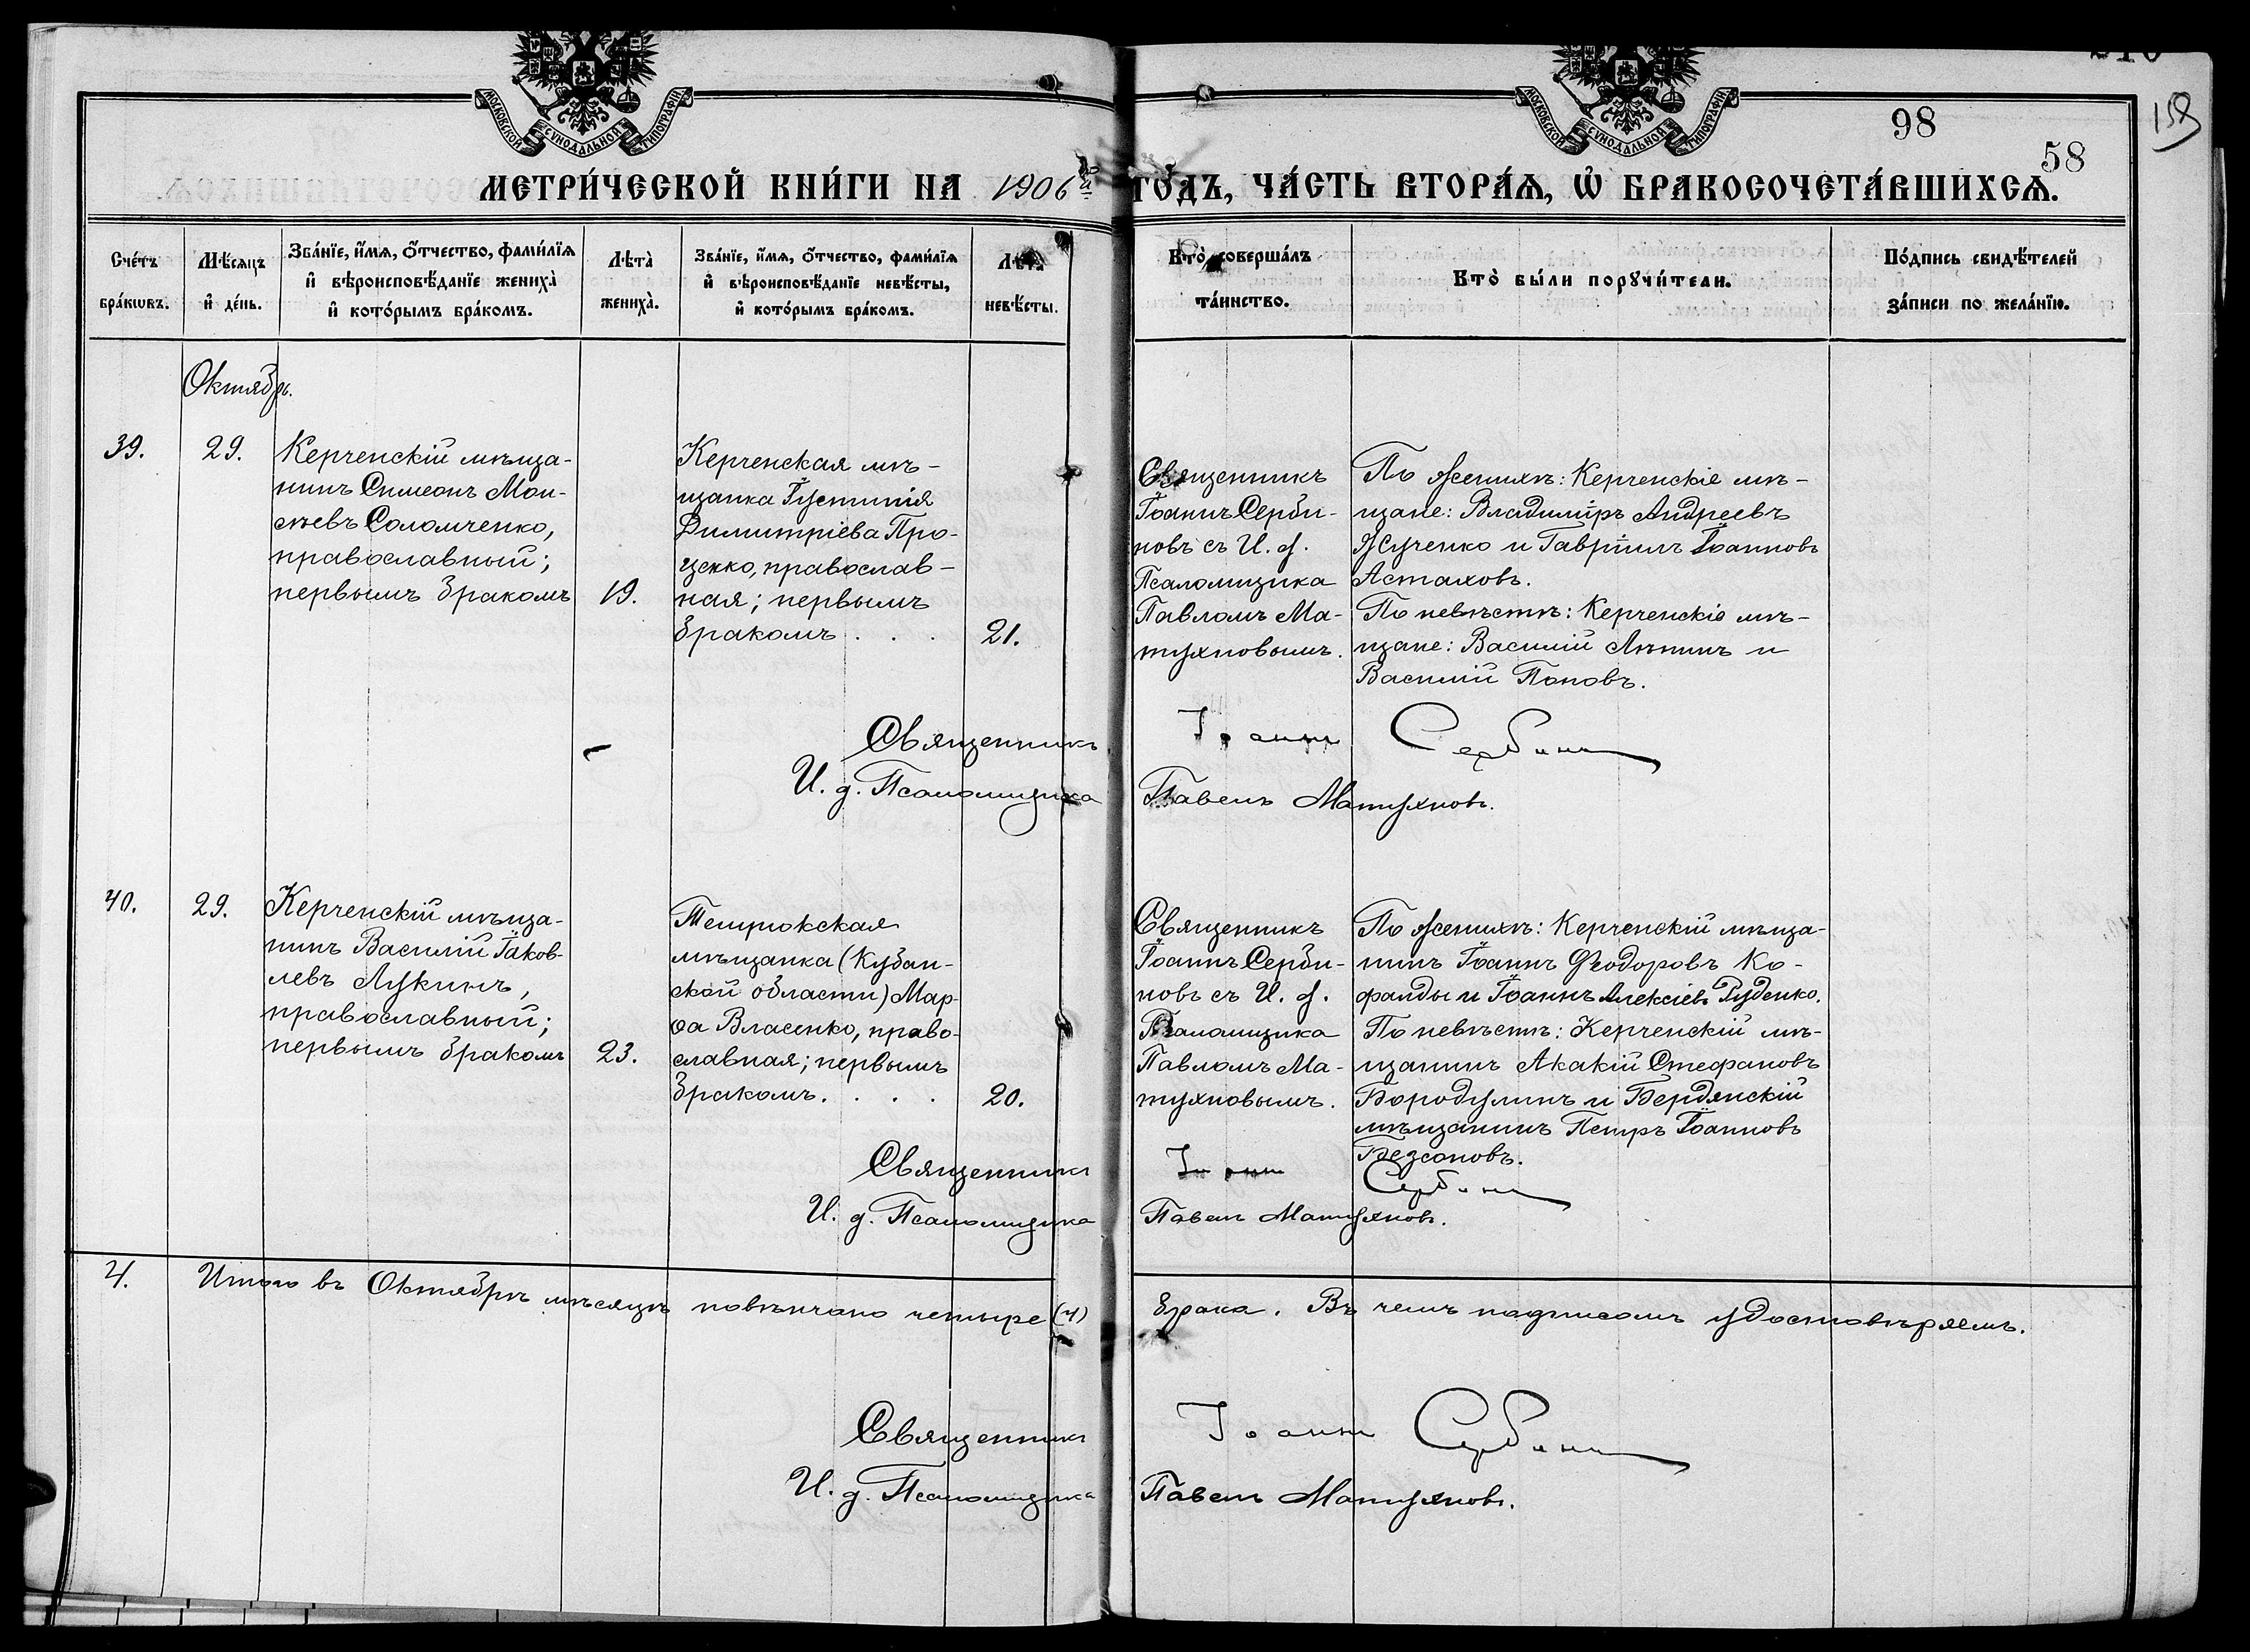 МОСКОВСКОЙ СѴНОДАЛЬНОЙ ТИПОГРАФІИ
МОСКОВСКОЙ СѴНОДАЛЬНОЙ ТИПОГРАФІИ
98
158
58
МЕТРИ́ЧЕСКОЙ КНИ́ГИ НА 1906й ГО́ДЪ, ЧА́СТЬ ВТОРА́Ѧ, Ѽ БРАКОСОЧЕТА́ВШИХСѦ.
Сче́тъ бра́кѡвъ.
Мѣ́сяцъ и҆ де́нь.
Зва́нїе, и҆́мѧ, ѻ҆́тчество, фами́лїѧ
и҆ вѣроисповѣ́данїе жениха̀
и҆ кото́рымъ бра́комъ.
Лѣта̀ жениха̀.
Зва́нїе, и҆́мѧ, ѻ҆́тчество, фами́лїѧ
и҆ вѣроисповѣ́данїе невѣ́сты,
и҆ кото́рымъ бра́комъ.
Лѣта̀ невѣ́сты.
Кто̀ соверша́лъ та́инство.
Кто̀ бы́ли порꙋчи́тели.
По́дпись свидѣ́телей
за́писи по жела́нїю.
Октябрь.
39.
29.
Керченскій мѣща-
нинъ Симеонъ Мои-
сѣевъ Соломченко,
православный;
первымъ бракомъ
19.
Керченская мѣ-
щанка Іустинія
Димитріева Про-
ценко, православ-
ная; первымъ
бракомъ . . .
21.
Священникъ
Іоаннъ Серби-
новъ съ И. д.
Псаломщика
Павломъ Ма-
тухновымъ.
По женихѣ: Керченскіе мѣ-
щане: Владиміръ Андреевъ
Жученко и Гавріилъ Іоанновъ
Астаховъ.
По невѣстѣ: Керченскіе мѣ-
щане: Василій Лѣтинъ и
Василій Поповъ.
Священникъ Іоаннъ Сербиновъ
И. д. Псаломщика Павелъ Матухновъ.
40.
29.
Керченскій мѣща-
нинъ Василій Іаков-
левъ Лукинъ,
православный;
первымъ бракомъ
23.
Темрюкская
мѣщанка (Кубан-
ской области) Мар-
ѳа Власенко, право-
славная; первымъ
бракомъ. . . .
20.
Священникъ
Іоаннъ Серби-
новъ съ И. д.
Псаломщика
Павломъ Ма-
тухновымъ.
По женихѣ: Керченскій мѣща-
нинъ Іоаннъ Ѳеодоровъ Ко-
фанды и Іоаннъ Алексіевъ Руденко.
По невѣстѣ: Керченскій мѣ-
щанинъ Акакій Стефановъ
Бородулинъ и Бердянскій
мѣщанинъ Петръ Іоанновъ
Безсоновъ.
Священникъ Іоаннъ Сербиновъ
И. д. Псаломщика Павелъ Матухновъ.
4. Итого въ Октябрѣ мѣсяцѣ повѣнчано четыре (4) брака. Въ чемъ подписомъ удостовѣряемъ.
Священникъ Іоаннъ Сербиновъ
И. д. Псаломщика Павелъ Матухновъ.